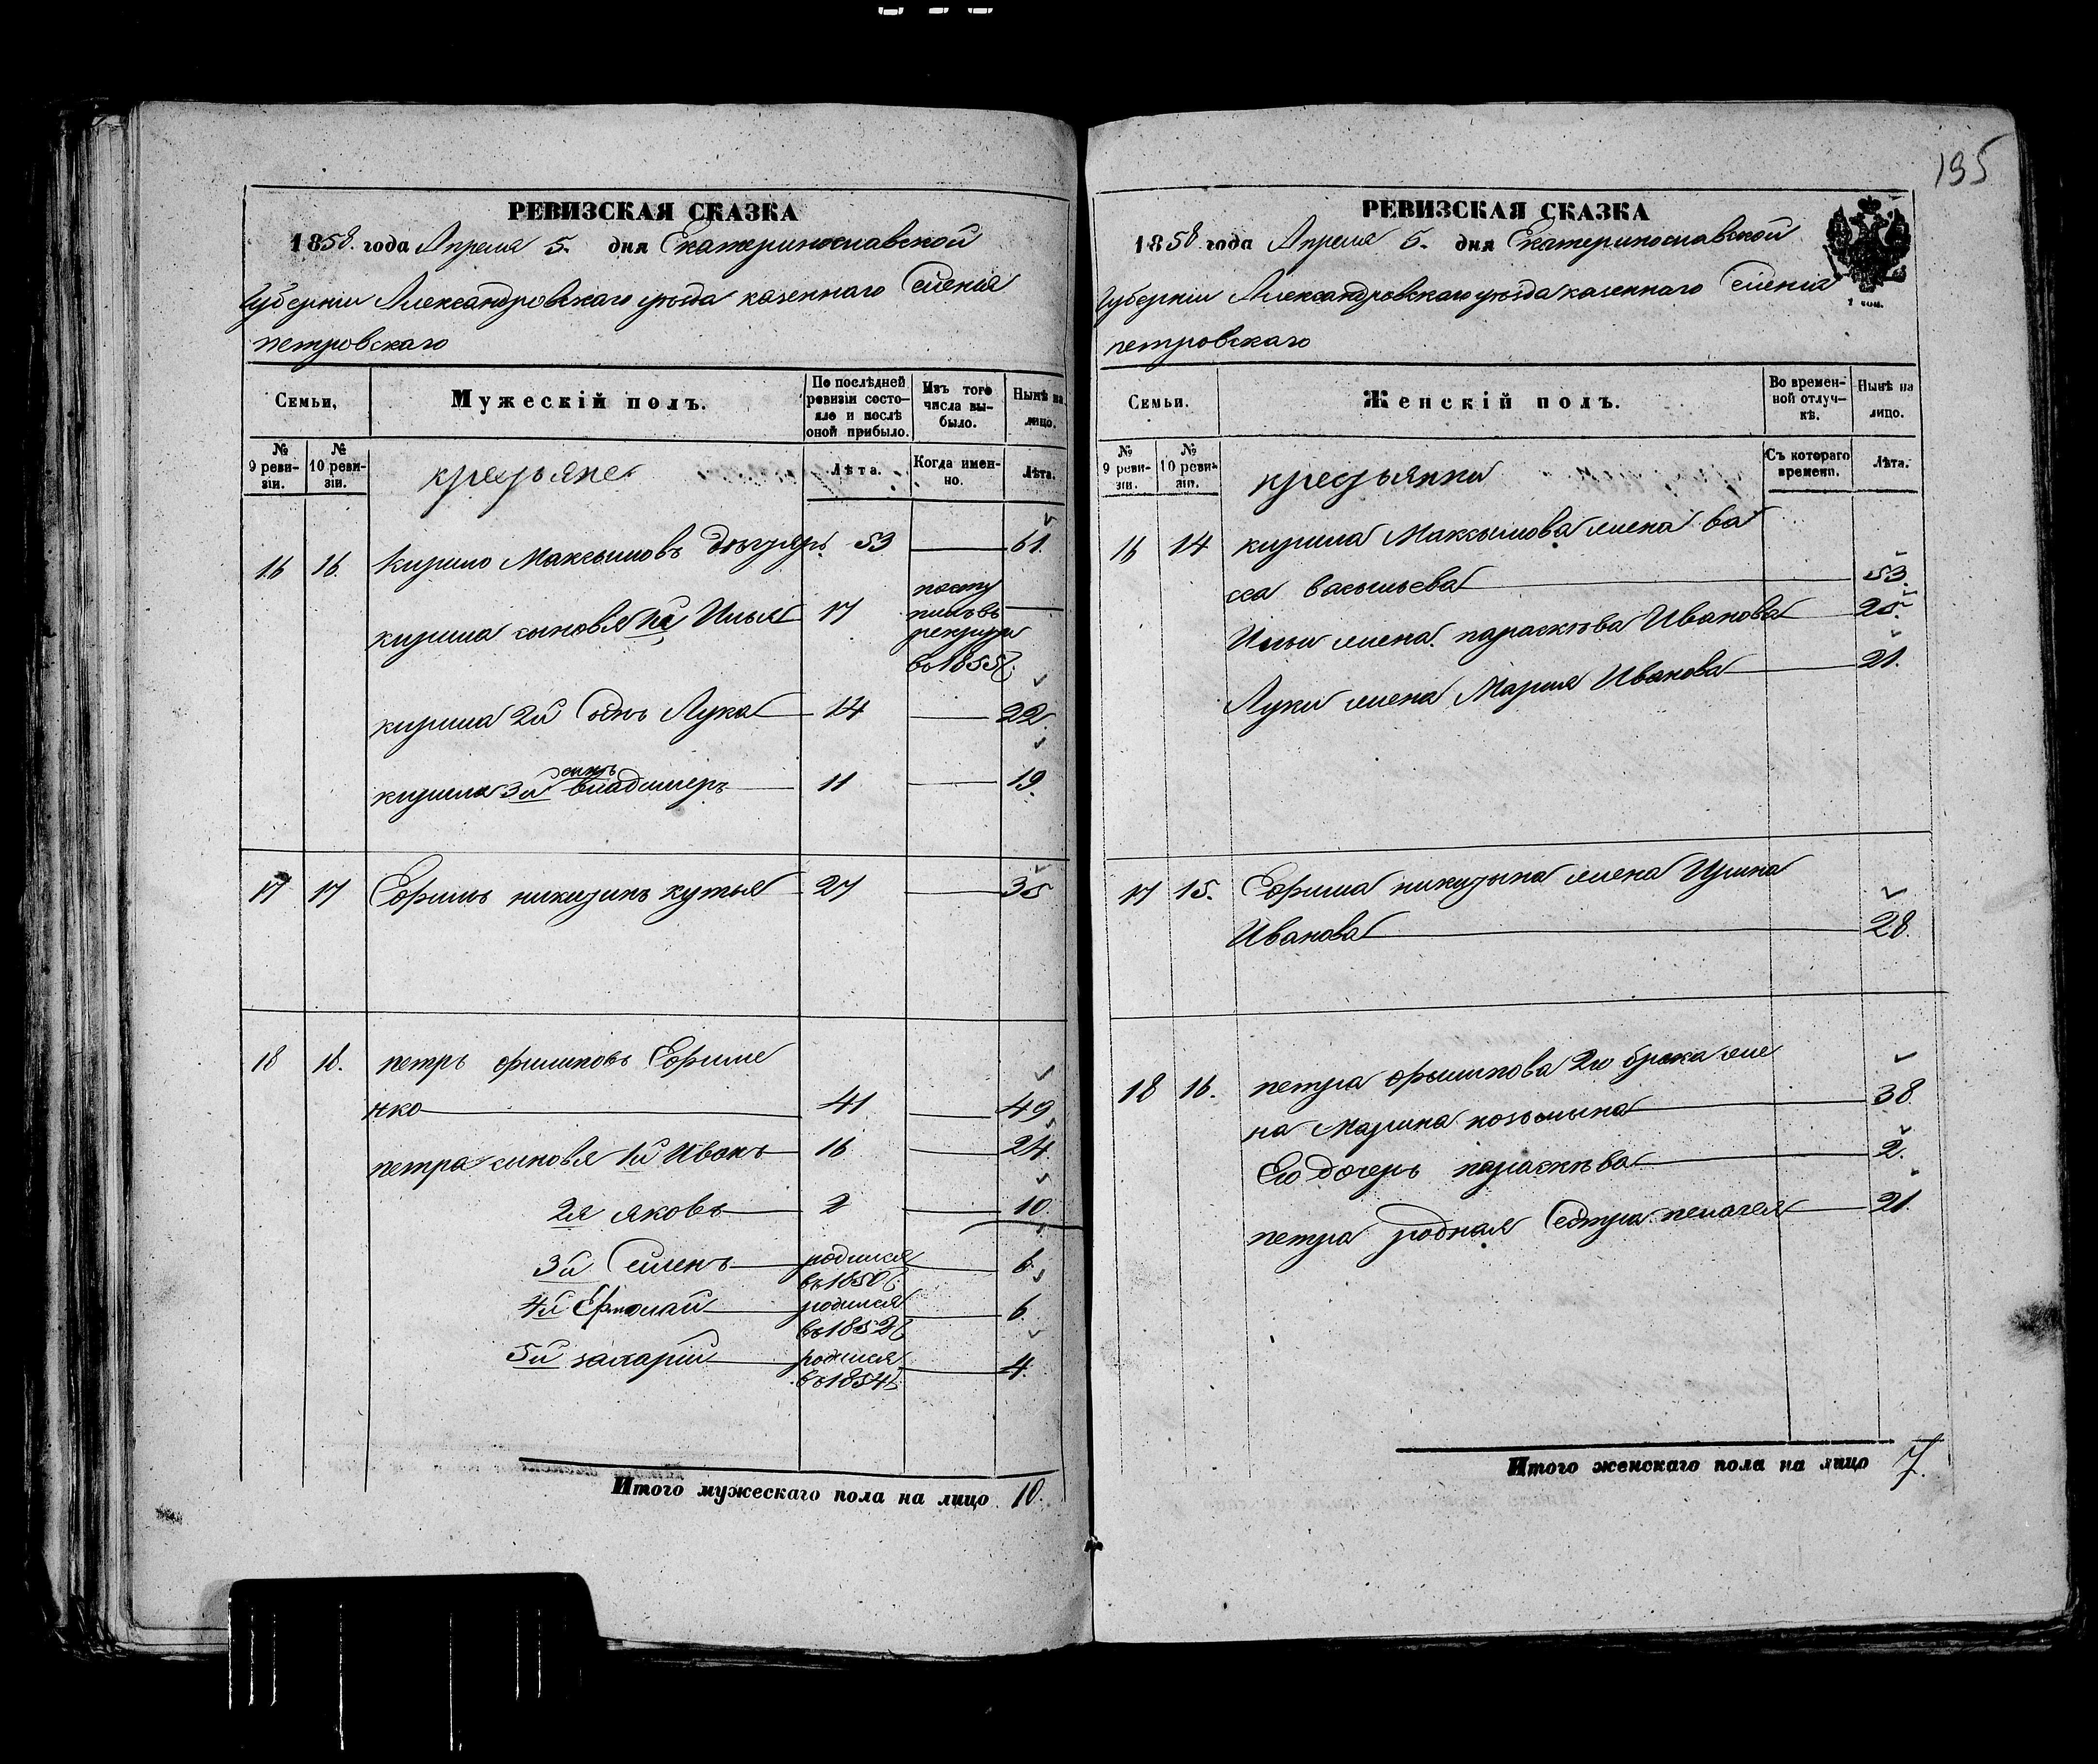 РЕВИЗСКАЯ СКАЗКА
1858. года Апреля 5. дня Екатеринославской
Губерніи Александровскаго уѣзда казеннаго Селенія
петровскаго
Семьи,
Мужескій полъ.
По послѣдней ревизіи состояло и послѣ оной прибыло.
Изъ того числа выбыло.
Нынѣ на лицо.
№ 9 ревизіи.
№ 10 ревизіи.
крестьяне
Лѣта.
Когда именно.
Лѣта.
16 16 Кирило Максымовъ 53 — 61.
кирила сыновья 1й Илья 17 посту
пилъ въ —
рекруты
въ 1855 г.
кирила 2й сынъ Лука 14 — 22.
сынъ
кирила 3й владимеръ 11 — 19.
17 17 Ефимъ никитинъ кутья 27 — 35
18 18. петръ филиповъ Ефиме
нко 41 — 49
петра сыновья 1й Иванъ 16 — 24.
2й яковъ 2 — 10.
3й Семенъ родился — 6
въ 1850 г.
4й Ермолай родился — 6.
въ 1852 г.
5й захарій родился — 4.
въ 1854 г.
Итого мужескаго пола на лицо 10.
195
РЕВИЗСКАЯ СКАЗКА
1858 года Апреля 5. дня Екатеринославской
Губерніи Александровскаго уѣзда казеннаго Селенія
петровскаго
Семьи.
Женскій полъ.
Во временной отлучкѣ.
Нынѣ на лицо.
№ 9 ревизіи.
№ 10 ревизіи.
крестьянки
Съ котораго времени.
Лѣта.
16 14 кирила Максымова жена ва
сса васыльева 53.
Ильи жена параскѣва Иванова 25.
Луки жена Мария Иванова 21.
17 15. Ефима никитына жена Ирина
Иванова 28.
18 16. петра филипова 2го брака же
на Марина козьмына 38
Его дочерь параскѣва 2.
петра родная Сестра пелагея 21.
Итого женскаго пола на лицо 7.